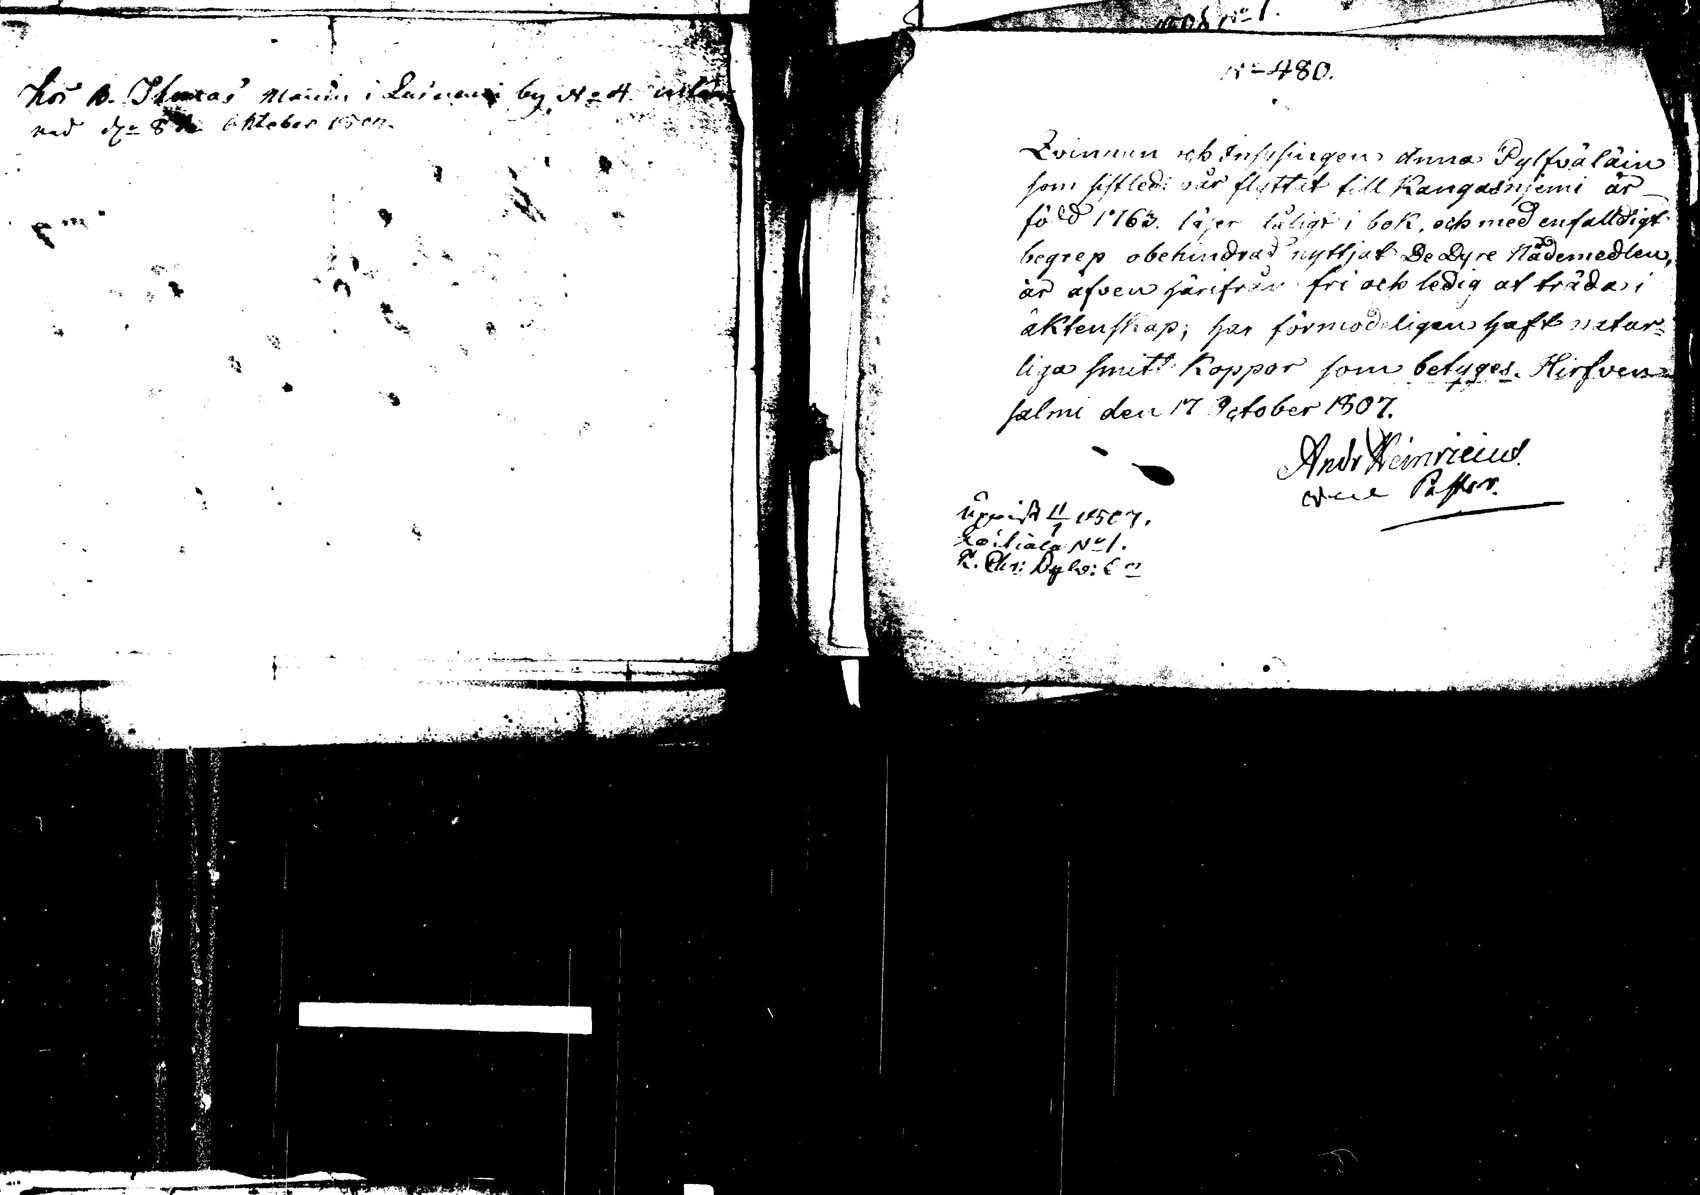 hos B. Thomas Manin i by No 4.
ved d. 8de October
No 1.
No 480.
Qvinnan och Inhysingen Anna Pylfväläin
som sistled: vår flyttat till Kangasnjemi är
född 1763. läser låligt i bok, och med enfalldigt
begrep obehindrad nyttjat De Dyre Nådemedlen,
är afven härifrån fri och ledig at träda i
äktenskap; har förmodeligen haft natur-
liga smitt Koppor som betyges. Hirfven-
salmi den 17 October 1807.
Andr Heinricius
Pastor.
1807.
No 1.